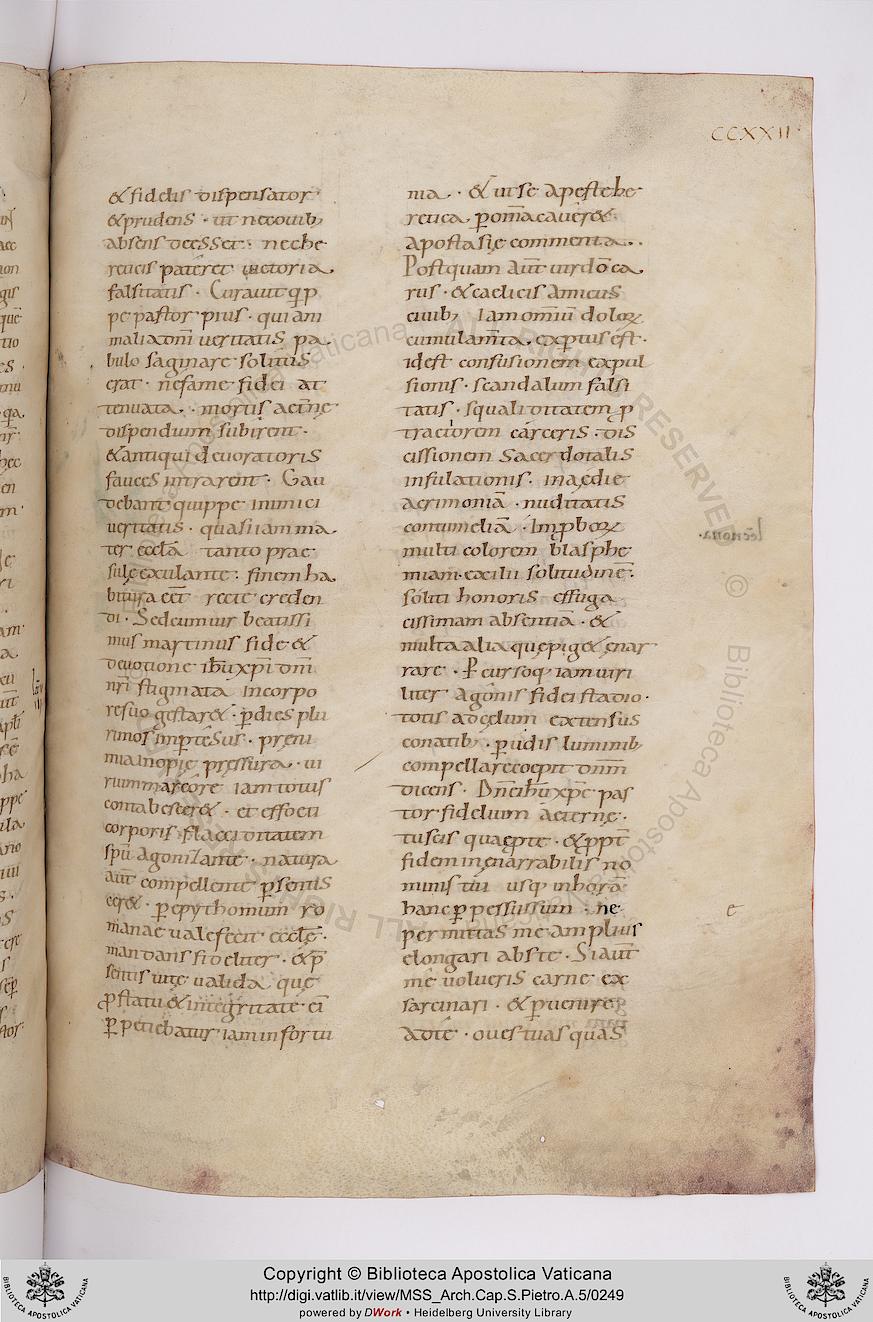 CCXXII
& fidelis dispensator
& prudens · ut necouib;
absens deesset · neche
reticis pateret uictoria
falsitatis · Curauit q͛p
pe pastor pius · qui ani
malia dn̄i ueritatis pa
bulo saginare solitus
erat · ne fame fidei at
tenuata · mortis aet̄ne
dispendium subirent ·
& antiqui deuoratoris
fauces intrarent · Gau
debant quippe inimici
ueritatis · quasi iam ma
ter eccl̄a tanto prae
sulę exulante · finem ha
bitura eēt recte creden
di · Sed cum uir beatissi
mus martinus fide &
deuotione ih̄u xp̄i dn̄i
nr̄i stigmata incorpo
re suo gestar& · p̱ dies plu
rimos imp̱tesus · preni
mia inopię pressura · ui
rium marcore iam totus
contabescer& · et effoeti
corporis flacciditatem
spū agonizante · natura
aūt compellente p̱sentis
eer& · p̱ epythomum ro
manae ualefecit ecclę ·
mandans fideliter · & p̄
sentis uitę ualida quę
ꝓ statu & integritate ei
p̱petiebatur iam infortu
nia · & ut se a peste he
retica p̱ om̄a cauer& ·
apostasię commenta · ·
Postquam aūt uir dō ca
rus · & caelicis amicus
ciuib; iam omniū doloꝝ
cumulam̄ta · exp̱tus est ·
id est confusionem expul
sionis · scandalum falsi
tatis · squaliditatem p̱
tractorem carceris · dis
cissionem sacerdotalis
insulationis · inaedie
acrimoniā · nuditatis
contumeliā · Imp̱boꝝ
multi colorem blasphe
miam · exilii solitudinē ·
soliti honoris effuga
cissimam absentiā · &
multa alia que pig& enar
rare · P̱cursoq; iam uiri
liter agonis fidei stadio ·
totis ad cęlum extensus
conatib; · p̱uidis luminib;
compellare coepit dn̄m
dicens · Dn̄e ih̄u xp̄e pas
tor fidelium aeterne ·
tuseis quaepte · & ppt̄
fidem inenarrabilis no
minis tui usq; in horā
hanc p̱pessus sum · ne
permittas me amplius
elongari abs te · Si aūt
me uolueris carne ex
sarcinari · & p̱uenire
ad te · oues tuas quas
e
Copyright © Biblioteca Apostolica Vaticana
http://digi.vatlib.it/view/MSS_Arch.Cap.S.Pietro.A.5/0249
powered by DWork • Heidelberg University Library